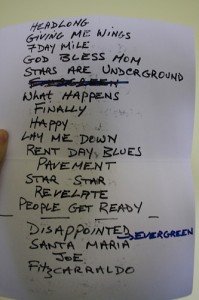 HEADLONG
GIVING ME WINGS
7 DAY MILE
GOD BLESS MOM
STARS ARE UNDERGROUND
EVERGREEN
WHAT HAPPENS
FINALLY
HAPPY
LAY ME DOWN
RENT DAY BLUES
PAVEMENT
STAR STAR
REVELATE
PEOPLE GET READY
DISAPPOINTED
EVERGREEN
SANTA MARIA
JOE
FITZCARRALDO